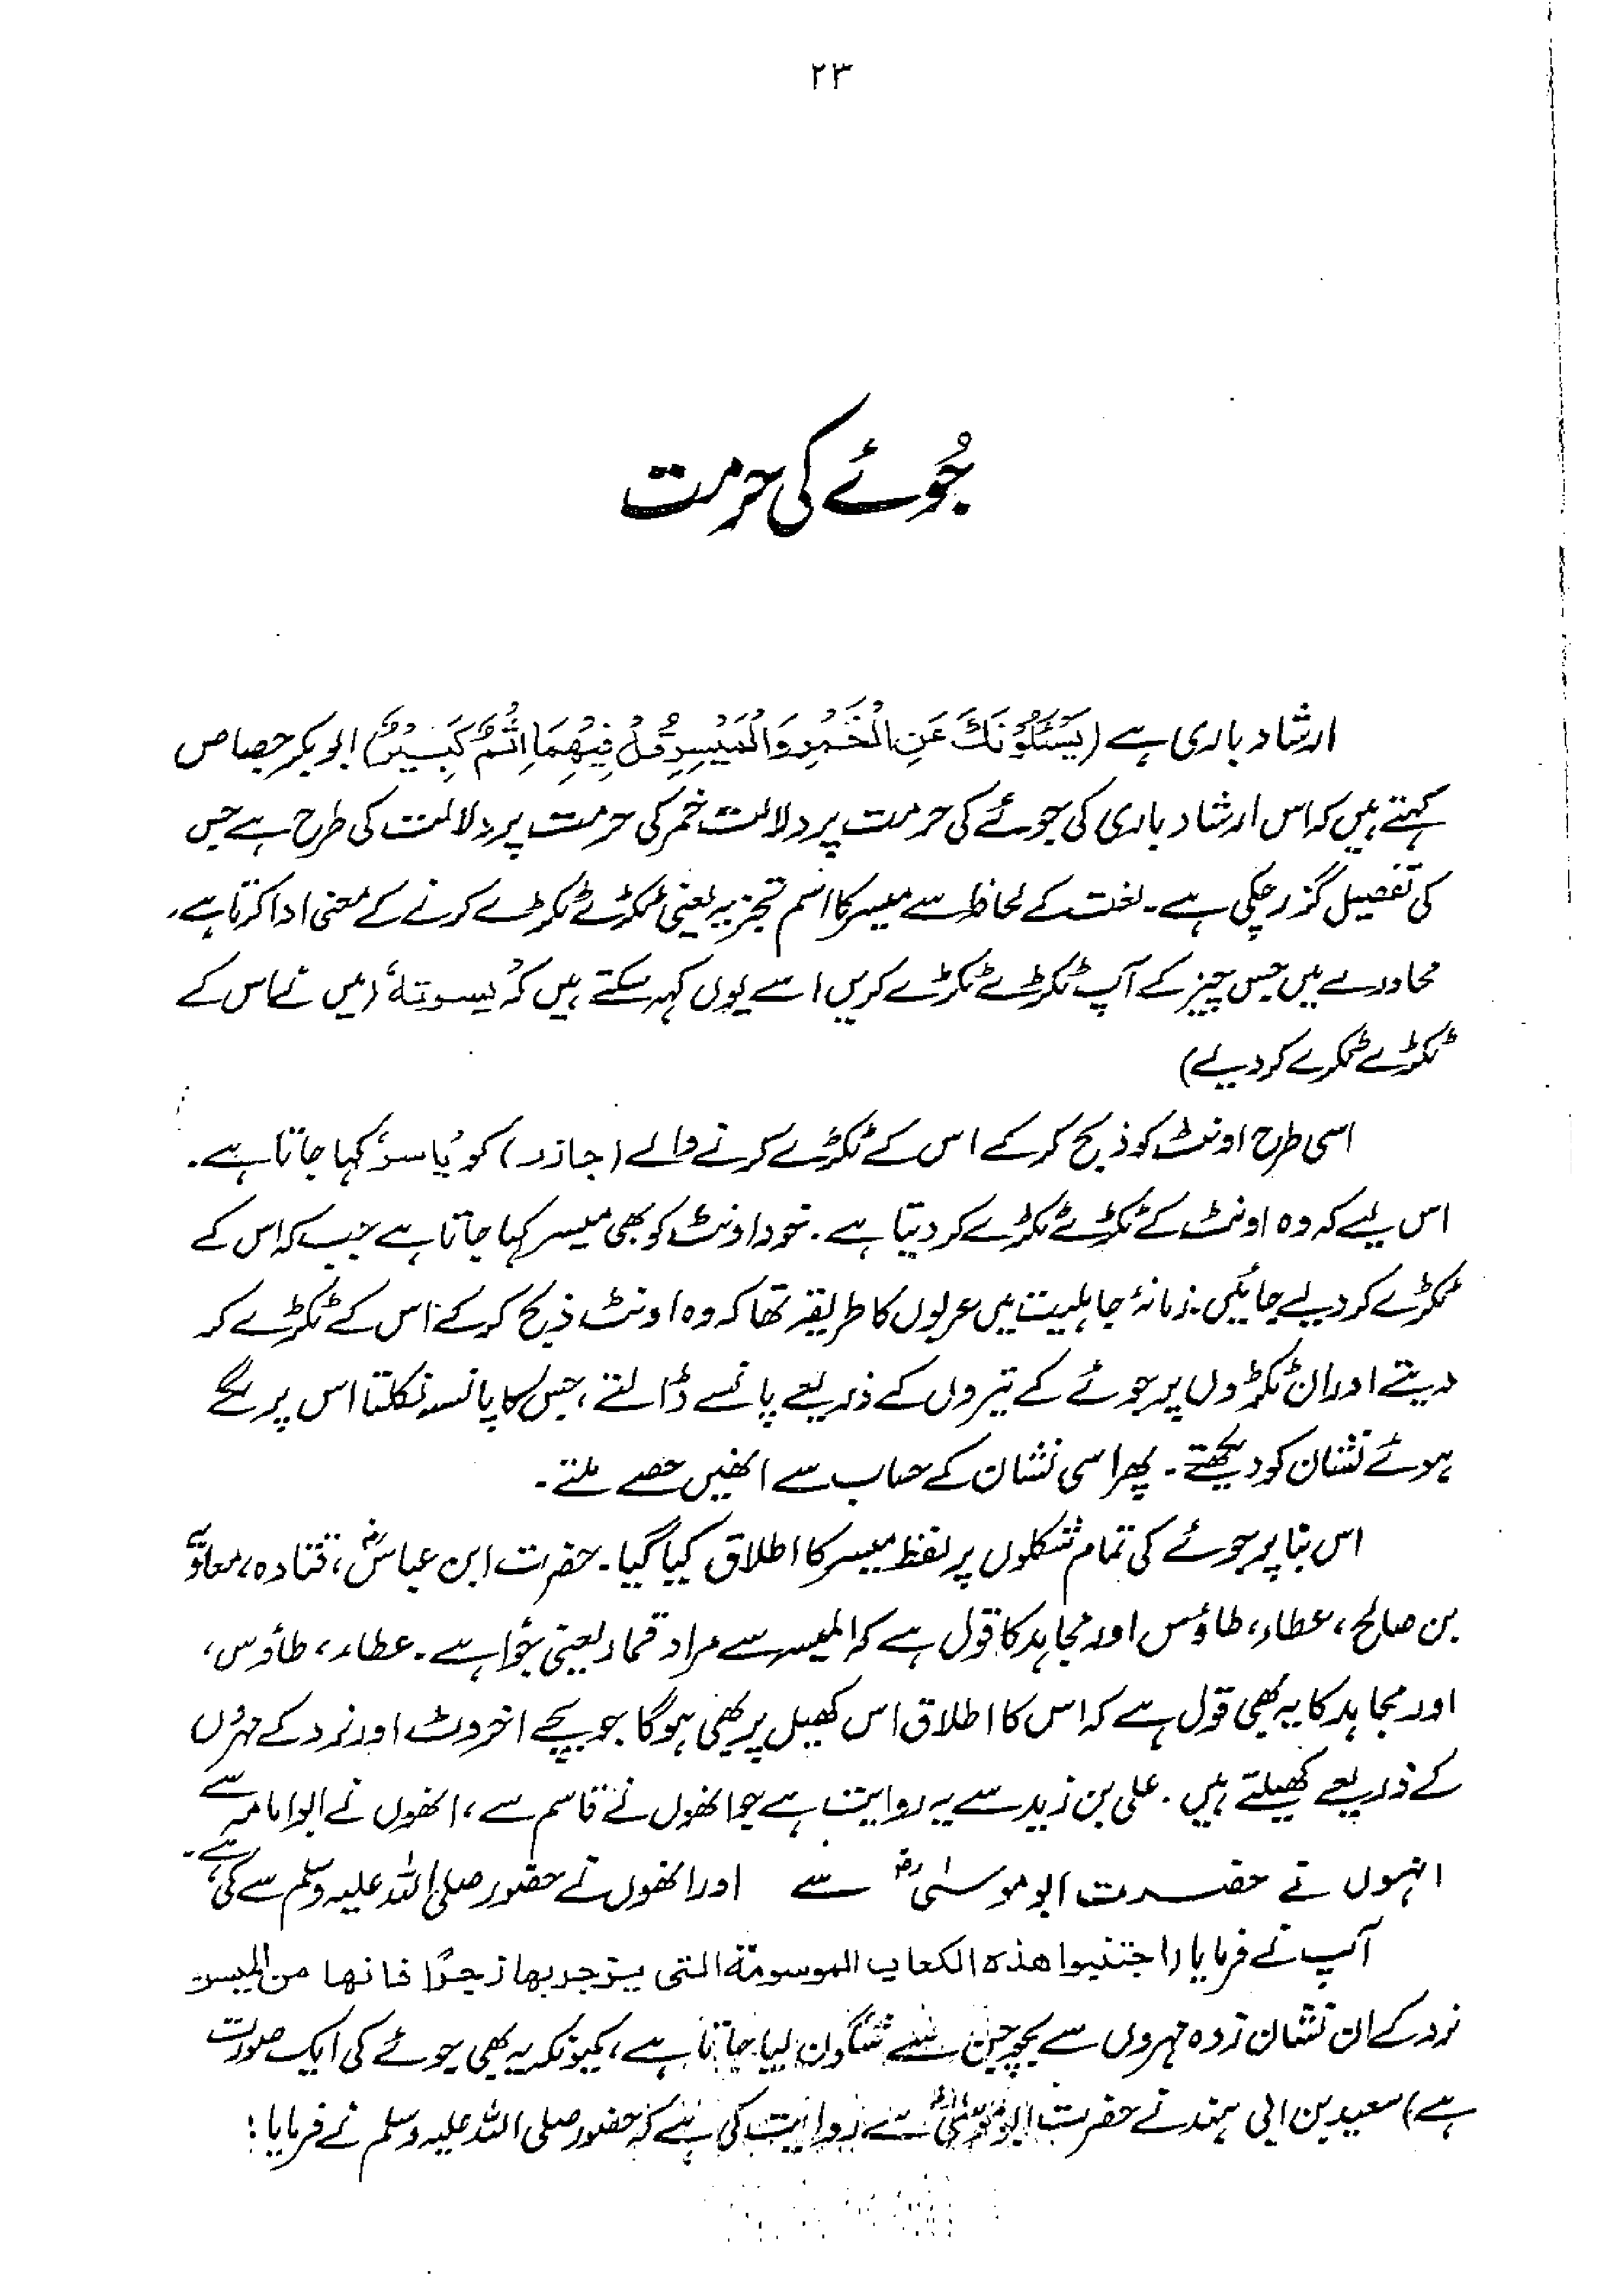 ۲۳
جُوئے کی حرمت
ارشاد باری ہے (یَسْئَلُوْنَكَ عَنِ الْخَمْرِ وَالْمَيْسِرِ قُلْ فِيْهِمَا اِثْمٌ كَبِيْرٌ) ابوبکر جصاص
کہتے ہیں کہ اس ارشاد باری کی جوئے کی حرمت پر دلالت خمر کی حرمت پر دلالت کی طرح ہے جس
کی تفصیل گزر چکی ہے۔ لغت کے لحاظ سے میسر کا اسم تجزیہ یعنی ٹکڑے ٹکڑے کرنے کے معنی ادا کرتا ہے۔
محاورے میں جس چیز کے آپ ٹکڑے ٹکڑے کریں اسے یوں کہہ سکتے ہیں کہ 'یسرتہ' (میں نے اس کے
ٹکڑے ٹکرے کر دیے)
اسی طرح اونٹ کو ذبح کر کے اس کے ٹکڑے کرنے والے (جازر) کو 'یاسر' کہا جاتا ہے۔
اس لیے کہ وہ اونٹ کے ٹکڑے ٹکڑے کر دیتا ہے۔ خود اونٹ کو بھی میسر کہا جاتا ہے جب کہ اس کے
ٹکڑے کر دیے جائیں۔ زمانۂ جاہلیت میں عربوں کا طریقہ تھا کہ وہ اونٹ ذبح کر کے اس کے ٹکڑے کر
دیتے اور ان ٹکڑوں پر جوئے کے تیروں کے ذریعے پانسے ڈالتے، جس کا پانسہ نکلتا اس پر لگے
ہوئے نشان کو دیکھتے۔ پھر اسی نشان کے حساب سے انھیں حصے ملتے۔
اس بنا پر جوئے کی تمام شکلوں پر لفظ میسر کا اطلاق کیا گیا۔ حضرت ابن عباسؓ، قتادہ، معاویہ
بن صالح، عطاء، طاؤس اور مجاہد کا قول ہے کہ المیسر سے مراد قمار یعنی جُوا ہے۔ عطاء، طاؤس،
اور مجاہد کا یہ بھی قول ہے کہ اس کا اطلاق اس کھیل پر بھی ہوگا جو بچے اخروٹ اور نرد کے مہروں
کے ذریعے کھیلتے ہیں۔ علی بن زید سے یہ روایت ہے جو انھوں نے قاسم سے، انھوں نے ابوامامہ سے
انہوں نے حضرت ابو موسیٰؓ سے اور انھوں نے حضور صلی اللہ علیہ وسلم سے کی ہے۔
آپ نے فرمایا (اجتنبوا هذه الكعاب الموسومة التی یزجر بها زجرًا فانها من المیسر
نرد کے ان نشان زدہ مہروں سے بچو جن سے شگون لیا جاتا ہے، کیونکہ یہ بھی جوئے کی ایک صورت
ہے) سعید بن ابی ہند نے حضرت ابوموسیٰؓ سے روایت کی ہے کہ حضور صلی اللہ علیہ وسلم نے فرمایا: